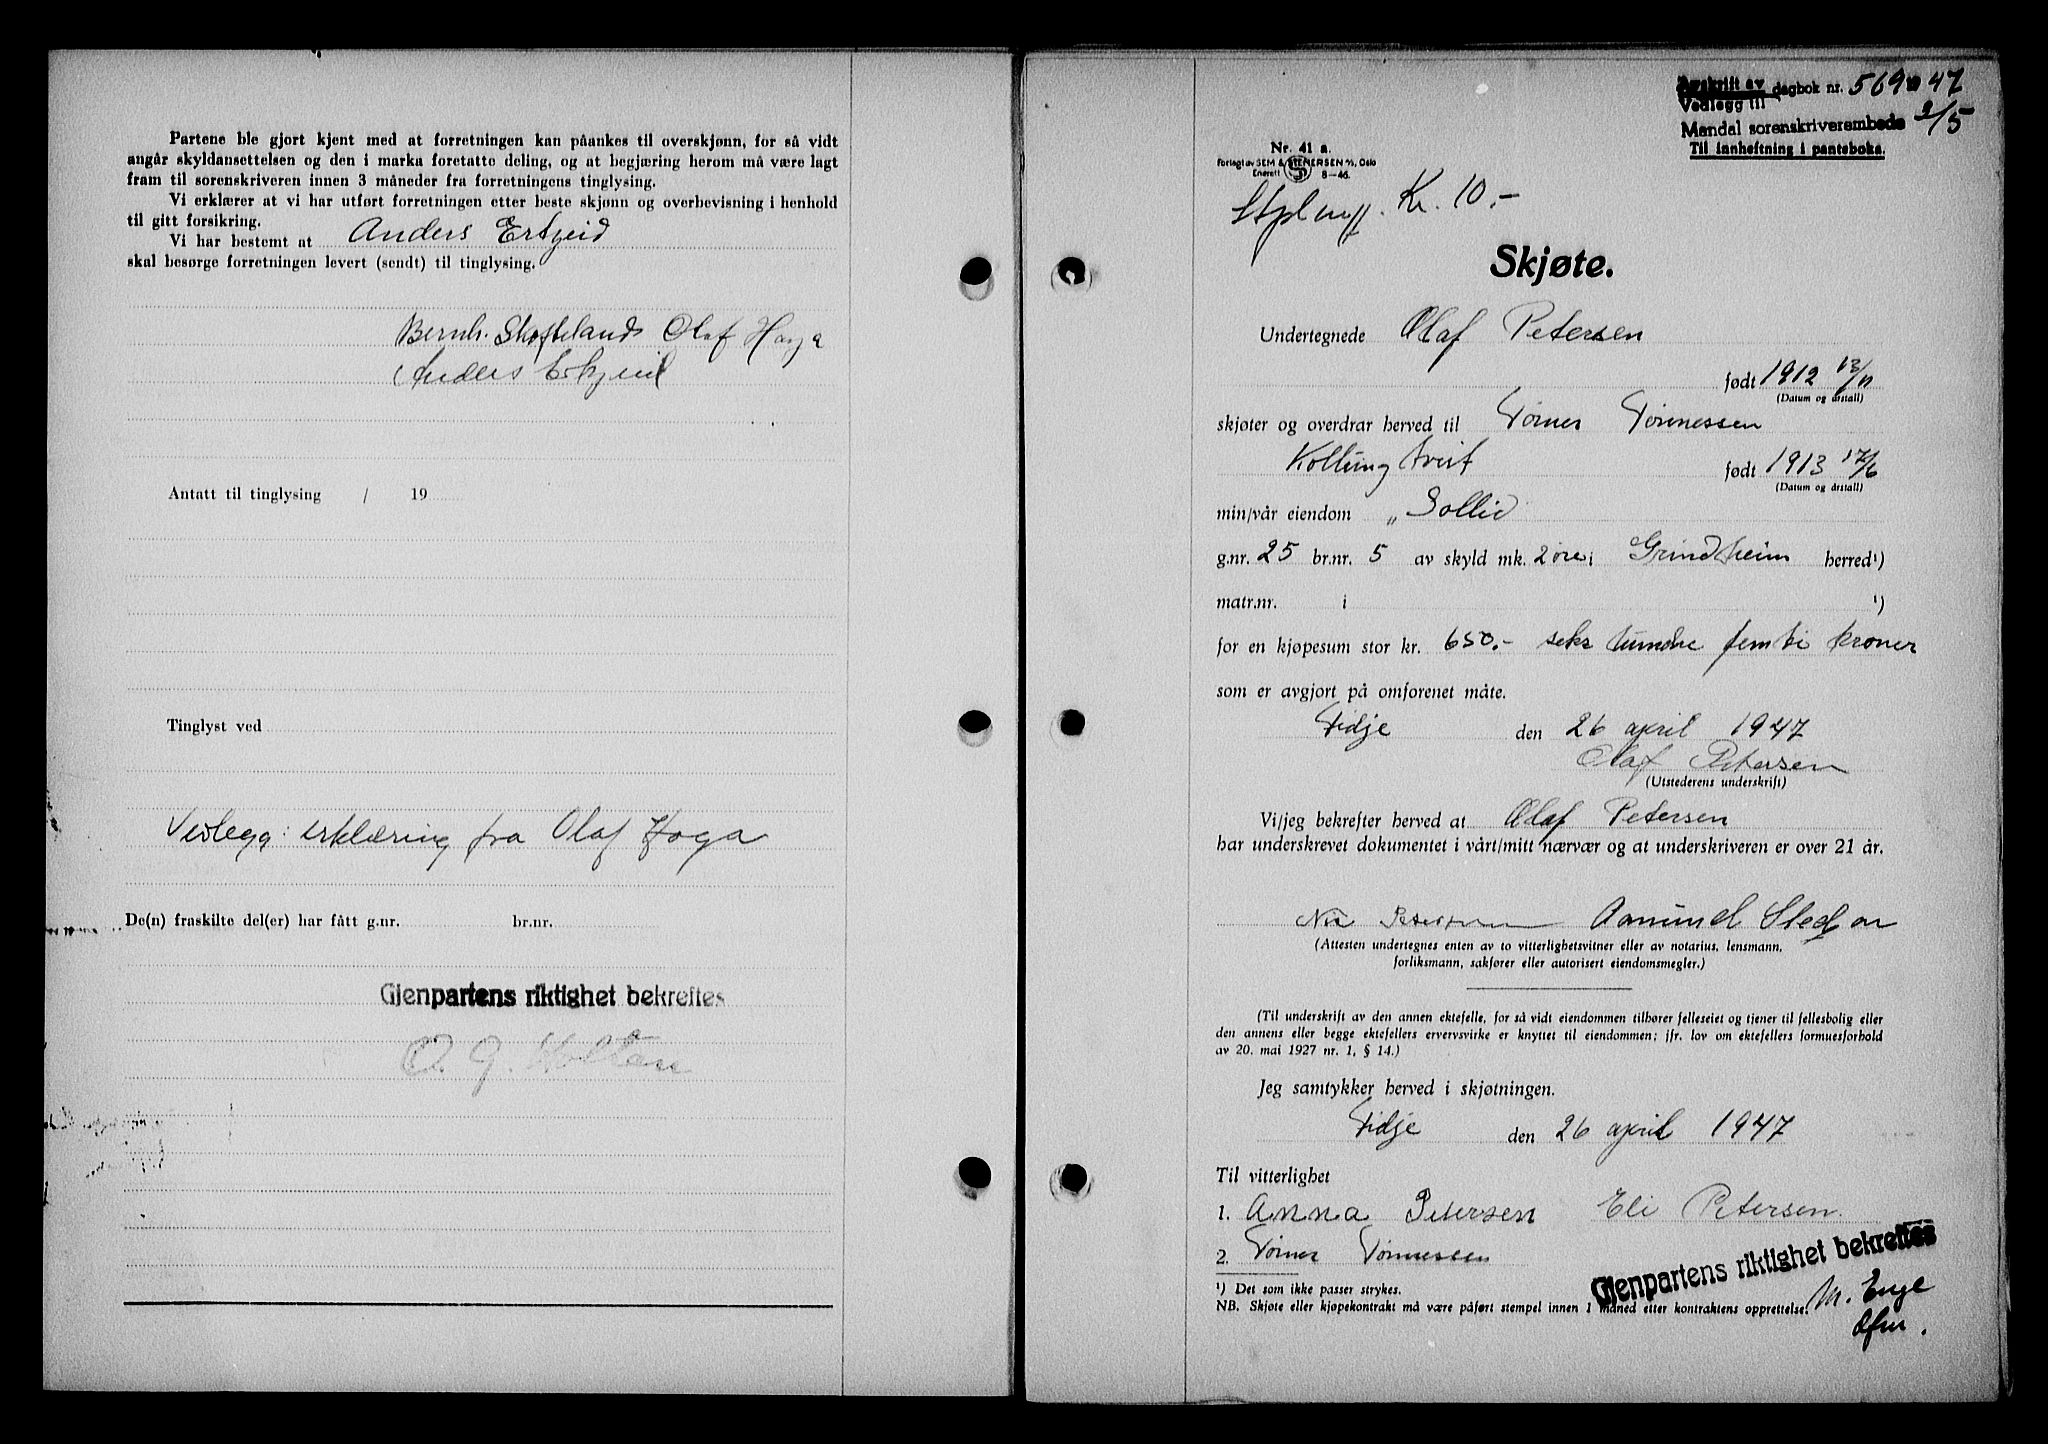 Partene ble gjort kjent med at forretningen kan påankes til overskjønn, for så vidt
angår skyldansettelsen og den i marka foretatte deling, og at begjæring herom må være lagt
fram til sorenskriveren innen 3 måneder fra forretningens tinglysing.
Vi erklærer at vi har utført forretningen etter beste skjønn og overbevisning i henhold
til gitt forsikring.
Vi har bestemt at Anders
skal besørge forretningen levert (sendt) til tinglysing.
Bernh. Olaf Haga
Anders
Antatt til tinglysing / 19
Tinglyst ved
Vedlegg: erklæring fra Olaf Haga
De(n) fraskilte del(er) har fått g.nr. br.nr.
Gjenpartens riktighet bekreftes
O. G. Holten
Avskrift av
Vedlegg til dagbok nr. 569 47
Mandal sorenskriverembede 2/5
Til innheftning i panteboka.
Nr. 41 a.
Forlagt av SEM & STENERSEN A/S, Oslo
Enerett S 8-46.
Kr. 10.-
Skjøte.
Undertegnede Olaf Petersen
født 1912 13/11
(Datum og årstall)
skjøter og overdrar herved til Tørnes Tønnessen
født 1913 17/6
(Datum og årstall)
min/vår eiendom "Sollid
g.nr. 25 br.nr. 5 av skyld mk. 2 øre i Grindheim herred ¹)
matr.nr. i ¹)
for en kjøpesum stor kr. 650.- seks hundre femti kroner
som er avgjort på omforenet måte.
Fidje den 26 april 1947
Olaf Petersen
(Utstederens underskrift)
Vi/jeg bekrefter herved at Olaf Petersen
har underskrevet dokumentet i vårt/mitt nærvær og at underskriveren er over 21 år.
Aanund
(Attesten undertegnes enten av to vitterlighetsvitner eller av notarius, lensmann,
forliksmann, sakfører eller autorisert eiendomsmegler.)
(Til underskrift av den annen ektefelle, for så vidt eiendommen tilhører felleseiet og tjener til fellesbolig eller
den annens eller begge ektefellers ervervsvirke er knyttet til eiendommen; jfr. lov om ektefellers formuesforhold
av 20. mai 1927 nr. 1, § 14.)
Jeg samtykker herved i skjøtningen.
Fidje den 26 april 1947
Til vitterlighet
1. Anna Petersen Eli Petersen
2. Tønnessen
¹) Det som ikke passer strykes.
NB. Skjøte eller kjøpekontrakt må være påført stempel innen 1 måned etter kontraktens opprettelse.
Gjenpartens riktighet bekreftes
M. Enge